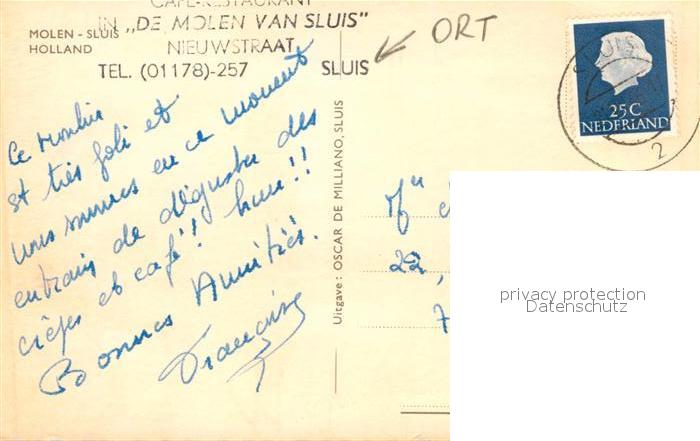 CAFÉ-RESTAURANT
IN „DE MOLEN VAN SLUIS”
NIEUWSTRAAT
TEL. (01178)-257 SLUIS
MOLEN - SLUIS
HOLLAND
ORT
SLUIS
25C
NEDERLAND
2
Ce moulin
est très joli et
nous sommes en ce moment
entrain de déguster des
crèpes et café!! hum!!
Bonnes Amitiés.
Francine
Uitgave: OSCAR DE MILLIANO, SLUIS
22,
7
privacy protection
Datenschutz